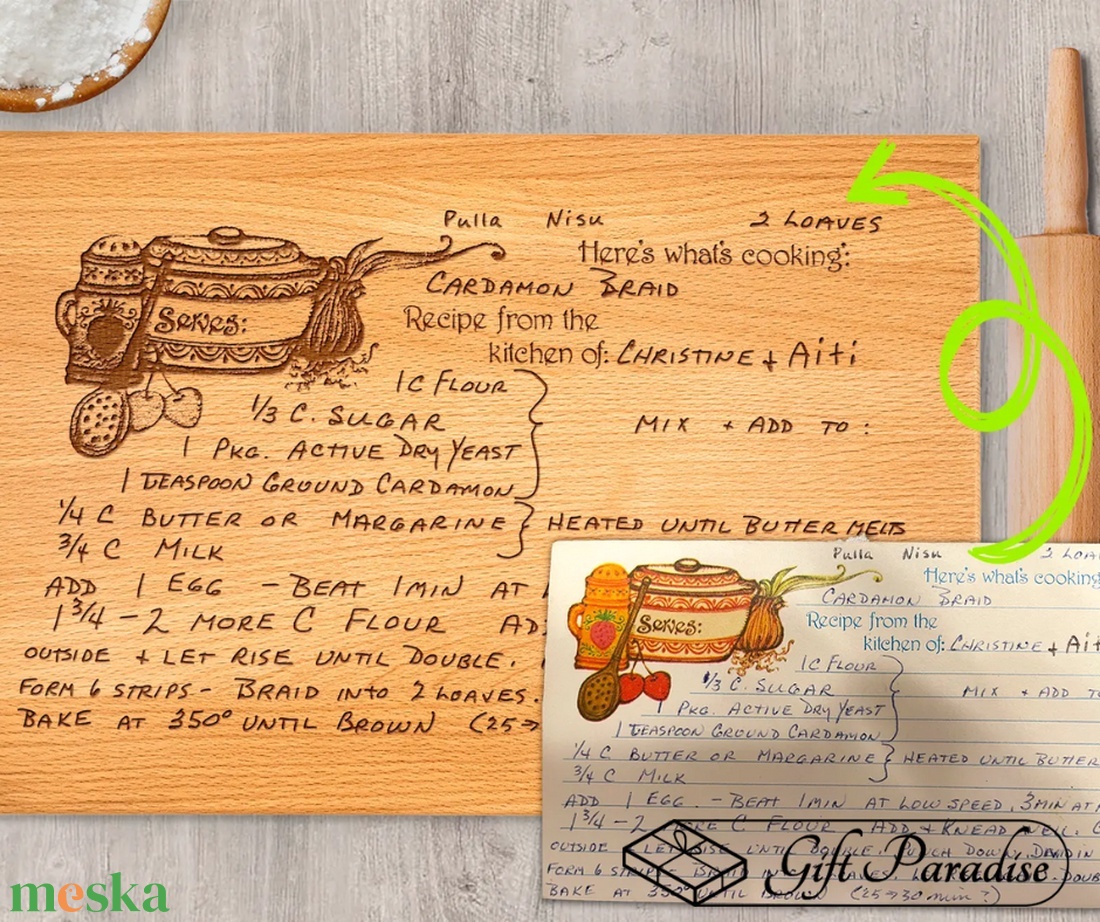 Pulla Nisu 2 LOAVES
Here's what's cooking:
CARDAMON BRAID
Recipe from the
kitchen of: CHRISTINE + Aiti
Serves:
1 C FLOUR
1/3 C. SUGAR
MIX + ADD TO:
1 PKG. ACTIVE DRY YEAST
1 TEASPOON GROUND CARDAMON
1/4 C BUTTER OR MARGARINE } HEATED UNTIL BUTTER MELTS
3/4 C MILK
ADD 1 EGG - BEAT 1 MIN AT
1 3/4 - 2 MORE C FLOUR AD
OUTSIDE + LET RISE UNTIL DOUBLE.
FORM 6 STRIPS - BRAID INTO 2 LOAVES.
BAKE AT 350° UNTIL BROWN (25→
Pulla Nisu 2 LOA
Here's what's cooking
CARDAMON BRAID
Recipe from the
kitchen of: CHRISTINE + Aiti
Serves:
1 C FLOUR
1/3 C. SUGAR
MIX + ADD TO
1 PKG. ACTIVE DRY YEAST
1 TEASPOON GROUND CARDAMON
1/4 C BUTTER OR MARGARINE } HEATED UNTIL BUTTER
3/4 C MILK
ADD 1 EGG. - BEAT 1 MIN AT LOW SPEED, 3 MIN AT
1 3/4 - 2 MORE C FLOUR ADD + KNEAD WELL.
OUTSIDE LET RISE UNTIL DOUBLE. PUNCH DOWN. DIVID IN
FORM 6 STRIPS BRAID IN
BAKE AT 350° UNTIL BROWN (25→30 min?)
Gift Paradise
meska